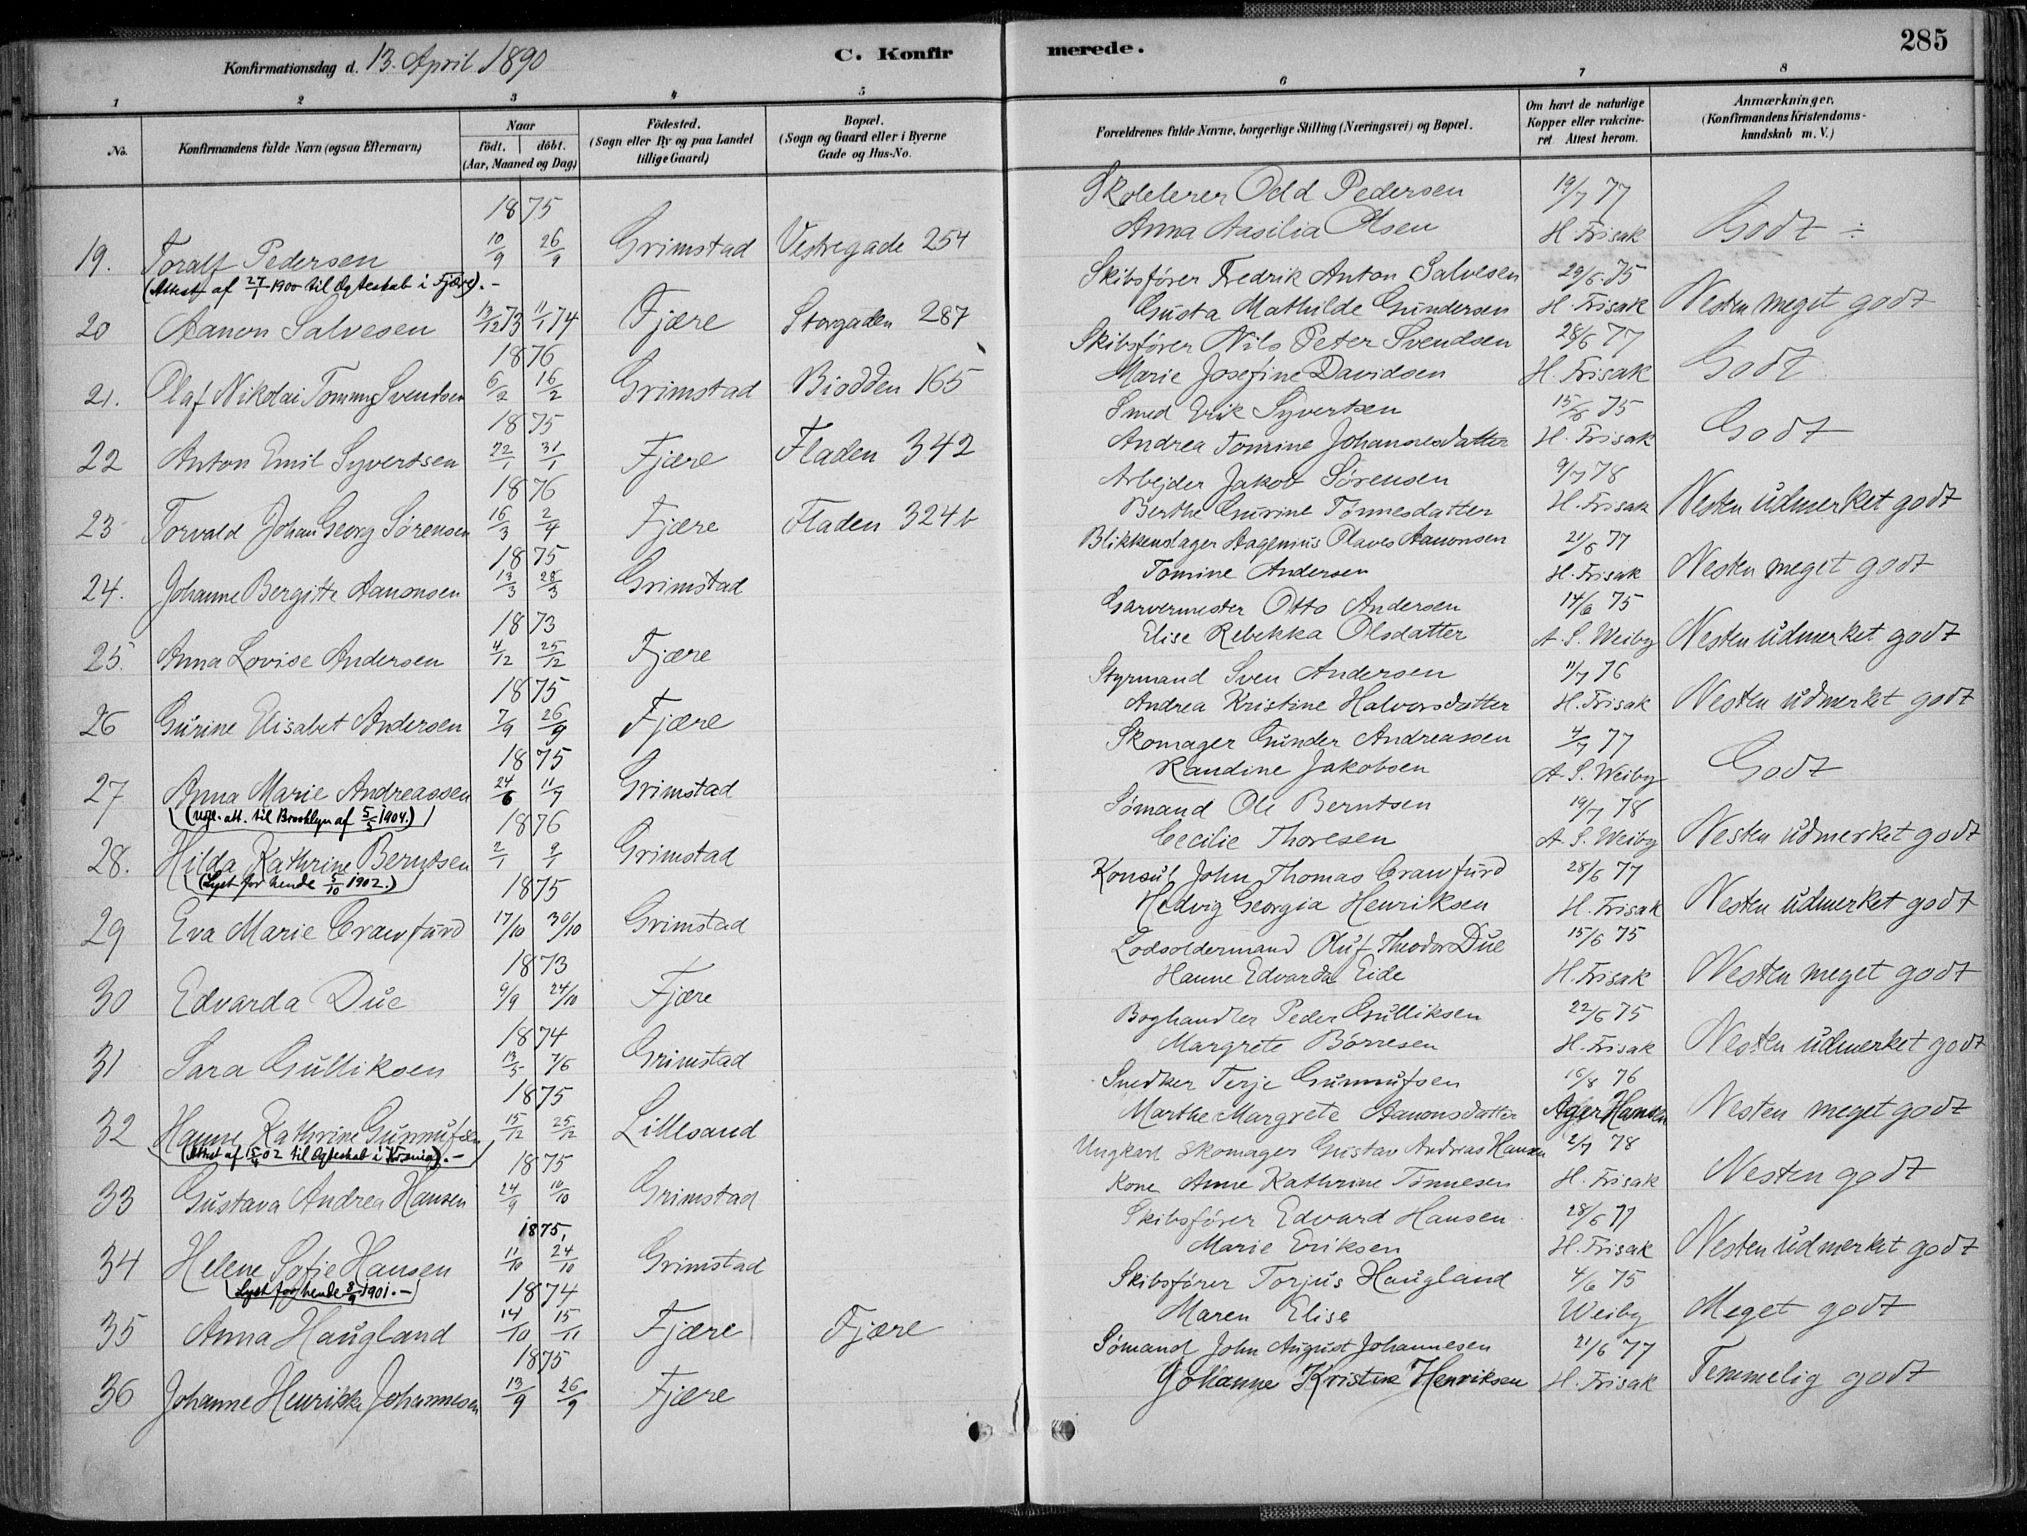 Konfirmationsdag d. 13. April 1890
C. Konfirmerede.
285
1 2 3 4 5 6 7 8
No.
Konfirmandens fulde Navn (ogsaa Efternavn)
Naar
födt. döbt.
(Aar, Maaned og Dag)
Födested.
(Sogn eller By og paa Landet
tillige Gaard)
Bopæl.
(Sogn og Gaard eller i Byerne
Gade og Hus-No.
Forældrenes fulde Navne, borgerlige Stilling (Næringsvei) og Bopæl.
Om havt de naturlige
Kopper eller vakcine-
ret Attest herom.
Anmærkninger.
(Konfirmandens Kristendoms-
kundskab m. V.)
1875
Skolelerer Odd Pedersen 19/7 77
19. Toralf Pedersen 10/9 26/9 Grimstad Vestregade 254 Anna Aasilia Olsen H. Frisak Godt ÷
(Attest af 27/1 1900 til Ægteskab i Fjære). -
Skibsfører Fredrik Anton Salvesen 29/6 75
20 Aanon Salvesen 13/12 73 11/1 74 Fjære Storgaden 287 Gusta Mathilde Gundersen H. Frisak Nesten meget godt
1876
Skibsfører Nils Peter Svendsen 28/6 77
21. Olaf Nikolai Tommy Svendsen 6/2 16/2 Grimstad Biodden 165 Marie Josefine Davidsen H. Frisak Godt
1875
Smed Erik Syvertsen 15/6 75
22 Anton Emil Syvertsen 22/1 31/1 Fjære Fladen 342 Andrea Tomine Johannesdatter H. Frisak Godt
1876
Arbejder Jakob Sørensen 9/7 78
23 Torvald Johan Georg Sørensen 16/3 2/4 Fjære Fladen 324b Berthe Gurine Tønnesdatter H. Frisak Nesten udmerket godt
1875
Blikkenslager Aagenius Olaves Aanonsen 21/6 77
24. Johanne Bergitte Aanonsen 13/3 28/3 Grimstad Tomine Andersen H. Frisak Nesten meget godt
1873
Garvermester Otto Andersen 14/6 75
25. Anna Lovise Andersen 4/12 25/12 Fjære Elise Rebekka Olsdatter A. S. Weiby Nesten udmerket godt
1875
Styrmand Sven Andersen 11/7 76
26 Gurine Elisabet Andersen 7/9 26/9 Fjære Andrea Kristine Halvorsdatter H. Frisak Nesten udmerket godt
1875
Skomager Gunder Andreassen 4/7 77
27 Anna Marie Andreassen 24/6 11/7 Grimstad Randine Jakobsen A. S. Weiby Godt
(Uegl. att. til Brooklyn af 5/5 1904.)
1876
Sømand Ole Berntsen 19/7 78
28. Hilda Kathrine Berntsen 2/1 9/1 Grimstad Cecilie Thoresen A. S. Weiby Nesten udmerket godt
(Lyst for hende 5/10 1902.)
1875
Konsul John Thomas Crawfurd 28/6 77
29 Eva Marie Crawfurd 17/10 30/10 Grimstad Hedvig Georgia Henriksen H. Frisak Nesten udmerket godt
1873
Lodsoldermand Oluf Theodor Due 15/6 75
30 Edvarda Due 9/9 24/10 Fjære Hanne Edvarda Eide H. Frisak Nesten meget godt
1874
Boghandler Peder Gulliksen 22/6 75
31 Sara Gulliksen 13/5 7/6 Grimstad Margrete Børresen H. Frisak Nesten udmerket godt
1875
Snedker Terje Gunnufsen 16/8 76
32 Hanne Kathrine Gunnufsen 15/12 25/12 Lillesand Marthe Margrete Aanonsdatter Ager Hansen Nesten meget godt
(Attest af 5/4 02 til Ægteskab i Krsnia). -
1875
Ungkarl Skomager Gustav Andreas Hansen 2/7 78
33 Gustava Andrea Hansen 24/9 10/10 Grimstad Kone Anne Kathrine Tønnesen H. Frisak Nesten godt
1875,
Skibsfører Edvard Hansen 28/6 77
34 Helene Sofie Hansen 11/10 24/10 Grimstad Marie Eriksen H. Frisak Nesten udmerket godt
(Lyst for hende 8/9 1901. -
1874
Skibsfører Torjus Haugland 4/6 75
35 Anna Haugland 14/10 15/11 Fjære Fjære Maren Elise Weiby Meget godt
1875
Sømand John August Johannesen 21/6 77
36 Johanne Henrikke Johannesen 13/9 26/9 Fjære Johanne Kristine Henriksen H. Frisak Temmelig godt